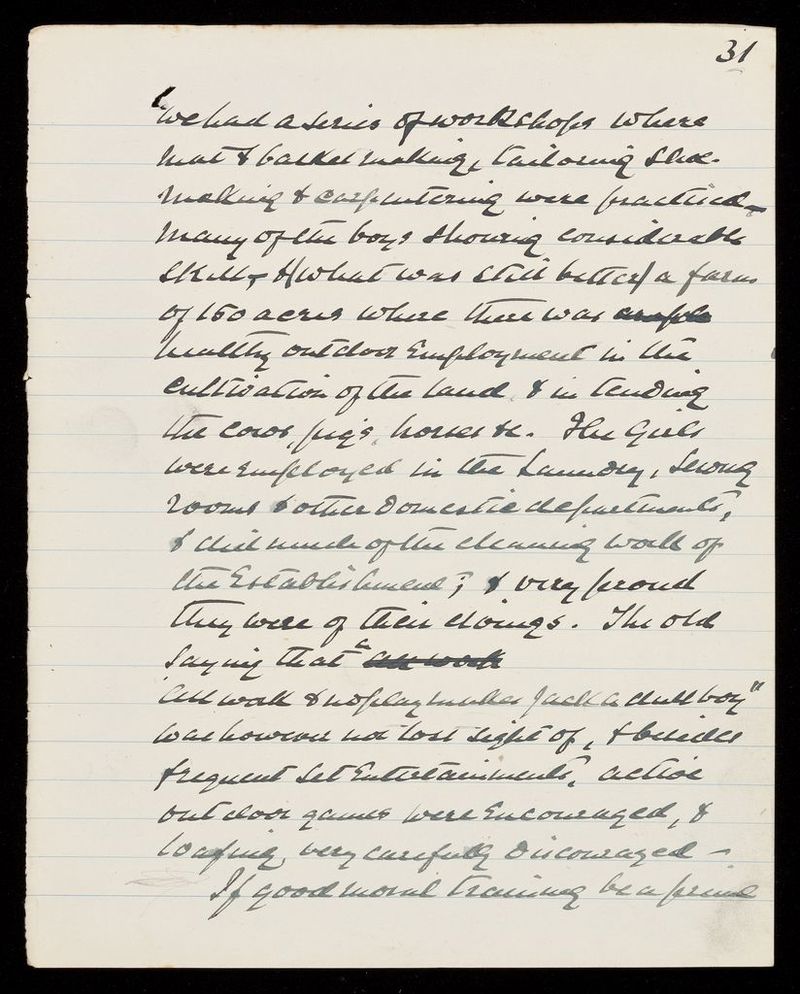 31
"We had a series of workshops where
mat & basket making, tailoring shoe-
making & carpentering were practised –
many of the boys showing considerable
skill, & (what was still better) a farm
of 150 acres where there was ample
healthy outdoor employment in the
cultivation of the land, & in tending
the cows, pigs, horses &c. The Girls
were employed in the Laundry, sewing
rooms & other domestic departments,
& did much of the cleaning work of
the Establishment; & very proud
they were of their doings. The old
saying that "all work
"all work & no play makes Jack a dull boy"
was however not lost sight of, & besides
frequent set Entertainments, active
outdoor games were encouraged, &
loafing, very carefully discouraged –
If good moral training be a prime